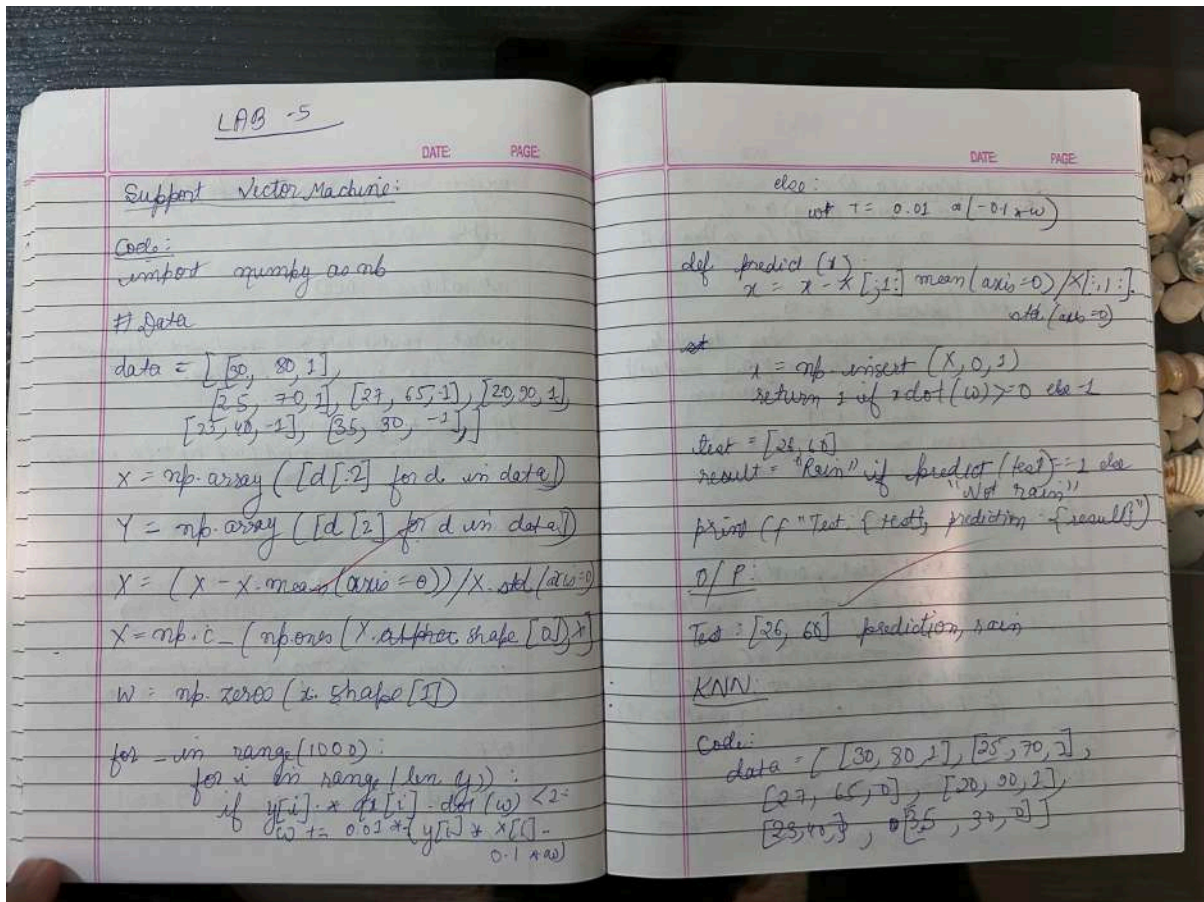 LAB -5
DATE: PAGE:
Support Vector Machine:
Code:
import numpy as nb
# Data
data = [ [30, 80, 1],
[25, 70, 1], [27, 65, -1], [20, 90, 1],
[23, 40, -1], [35, 30, -1], ]
X = np.array ( [d [:2] for d in data])
Y = np.array ( [d [2] for d in data])
X = (X - X.mean (axis = 0)) / X.std (axis=0)
X = np.c_ (np.ones (X. shape [0]), X]
W = np. zeros (x. shape [1])
for _ in range (1000) :
for i in range (len y)) :
if y[i] * x[i] . dot (w) < 1:
w += 0.01 * ( y[i] * x[i] -
0.1 * w)
DATE: PAGE:
else :
w += 0.01 * (-0.1 * w)
def predict (x) :
x = x - X [:,1:] mean (axis = 0) / X[:,1:].
std (axis = 0)
x = np. insert (X, 0, 1)
return 1 if x dot (w) >= 0 else -1
test = [26, 60]
result = "Rain" if predict (test) == 1 else
"Not rain"
print (f "Test. {test}, prediction {result}")
O/P:
Test : [26, 60] prediction, rain
KNN:
Code:
data = [ [30, 80, 1], [25, 70, 1],
[27, 65, 0], [20, 90, 1],
[23, 40, ] , [35, 30, 0] ]